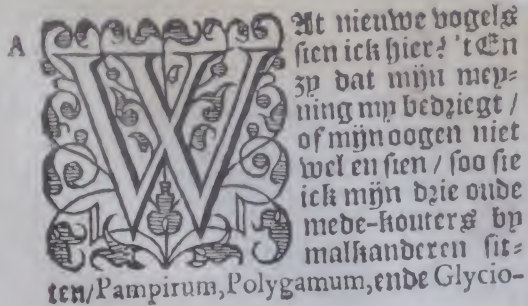 A
WAt nieuwe vogels
sien ick hier? 't En
zy dat mijn mey-
ning my bedriegt /
of mijn oogen niet
wel en sien / soo sie
ick mijn drie oude
mede-kouters by
malkanderen sit-
ten/Pampirum,Polygamum,ende Glycio-